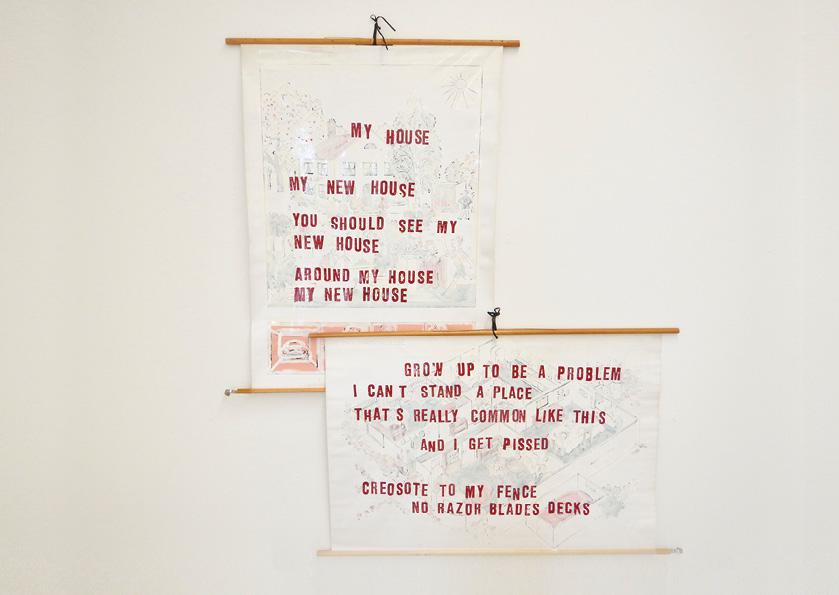 MY HOUSE
MY NEW HOUSE
YOU SHOULD SEE MY
NEW HOUSE
AROUND MY HOUSE
MY NEW HOUSE
GROW UP TO BE A PROBLEM
I CAN T STAND A PLACE
THAT S REALLY COMMON LIKE THIS
AND I GET PISSED
CREOSOTE TO MY FENCE
NO RAZOR BLADES DECKS